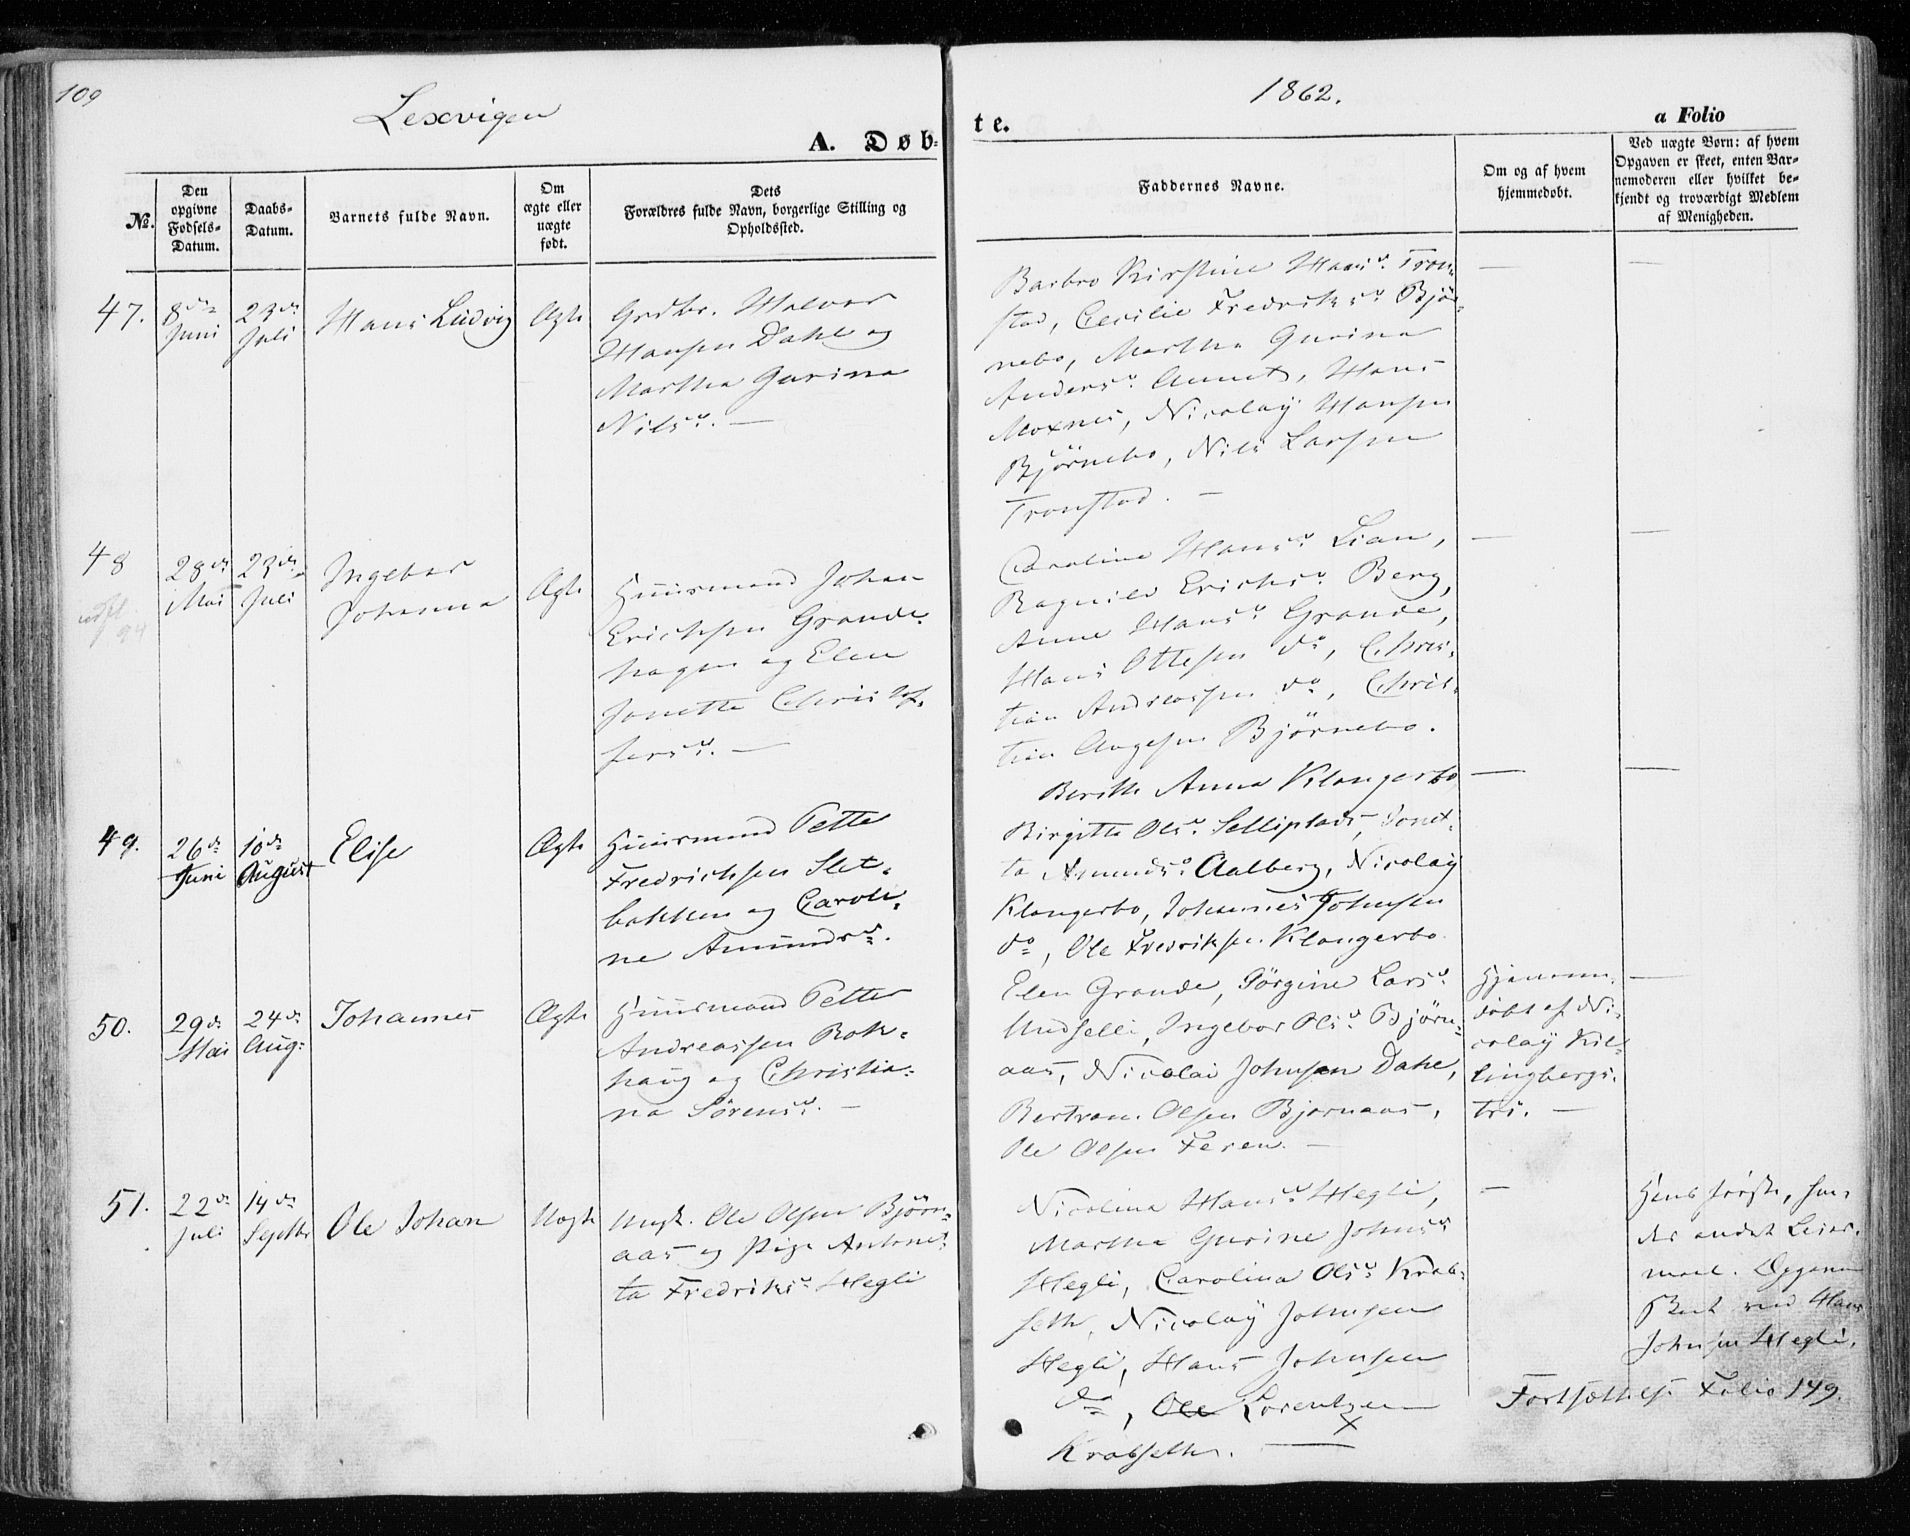 109
Lexvigen
1862.
A. Døb-
te.
a Folio
№.
Den
opgivne
Fødsels-
Datum.
Daabs-
Datum.
Barnets fulde Navn.
Om
ægte eller
uægte
født.
Dets
Forældres fulde Navn, borgerlige Stilling og
Opholdssted.
Faddernes Navne.
Om og af hvem
hjemmedøbt.
Ved uægte Børn: af hvem
Opgaven er skeet, enten Bar-
nemoderen eller hvilket be-
kjendt og troværdigt Medlem
af Menigheden.
47.
8de
Juni
23de
Juli
Hans Ludvig
Ægte
Grdbr. Halvor
Hansen Dahl og
Martha Gurina
Nilsd. —
Barbro Kirstine Hansd. Tron-
stad, Cecilie Fredriksd. Bjør-
nebo, Martha Gurina
Andersd. Aunet, Hans
Moxnes, Nicolay Hansen
Bjørnebo, Nils Larsen
Tronstad. —
48
28de
Mai
23de
Juli
Ingebor
Johanna
Ægte
Huusmand Johan
Erichsen Grande-
hagen og Elen
Jonette Christof-
fersd. —
Caroline Hansd. Lian,
Ragnild Erichsd. Berg,
Anne Hansd. Grande,
Hans Ottesen do, Chris-
tian Andreassen do, Chris-
tian Aagesen Bjørnebo.
49.
26de
Juni
10de
August
Elise
Ægte
Huusmand Petter
Fredrichsen Slet-
bakken og Caroli-
ne Amundsd.
Berith Anna Klangerbo
Birgitte Olsd. Selliplads, Jonet-
ta Amundsd. Aalberg, Nicolay
Klangerbo, Johannes Johnsen
do, Ole Fredriksen Klangerbo
50.
29de
Mai
24de
Aug:
Johannes
Ægte
Huusmand Petter
Andreassen Rok-
haug og Christia-
na Sørensd. —
Elen Grande, Jörgine Larsd.
Udselli, Ingebor Olsd. Bjørn-
aas, Nicolai Johnsen Dahl,
Bertran Olsen Bjørnaas,
Ole Olsen Feren. —
Hjemme-
døbt af Ni-
colay Kil-
lingbergs-
tri. —
51.
22de
Juli
14de
Septbr
Ole Johan
Uægte
Ungk. Ole Olsen Bjørn-
aas og Pige Antonet-
ta Fredriksd. Hegli
Nicolina Hansd. Hegli,
Martha Gurine Johnsd.
Hegli, Carolina Olsd. Krab-
seth, Nicolay Johnsen
Hegli, Hans Johnsen
do, Ole Lorentzen
Krabseth. —
Hans første, hen-
des andet Leier-
maal. Opgaven
skeet ved Hans
Johnsen Hegli.
Fortsættelse Folio 149.